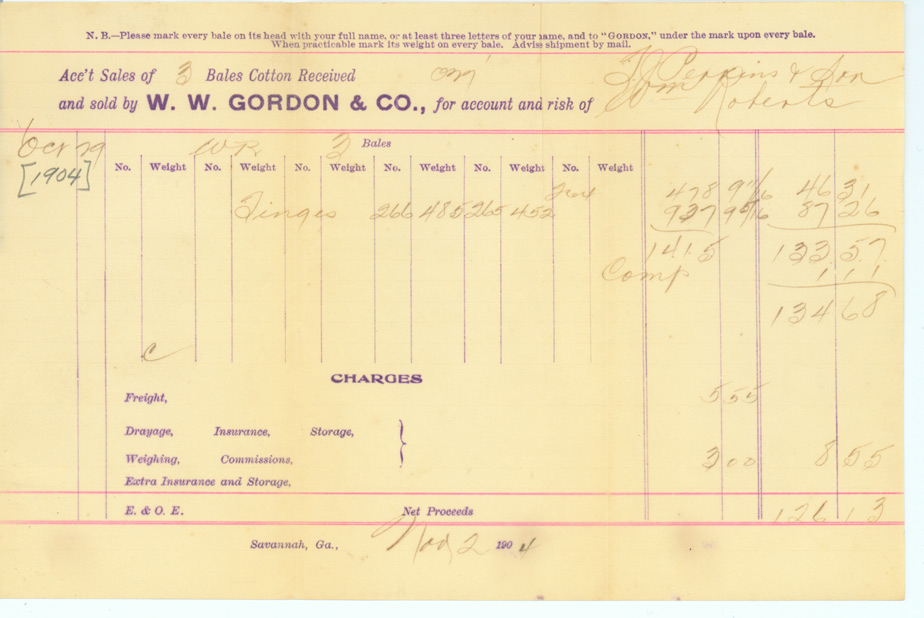 N. B.—Please mark every bale on its head with your full name, or at least three letters of your name, and to "GORDON," under the mark upon every bale.
When practicable mark its weight on every bale. Advise shipment by mail.
Acc't Sales of 3 Bales Cotton Received
T J Perkins & Son
and sold by W. W. GORDON & CO., for account and risk of Wm Roberts
Oct 29 W R 3 Bales
[1904]
No. Weight No. Weight No. Weight No. Weight No. Weight No. Weight
264 478 9 11/16 46 31
Tinges 266 485 265 452 937 9 5/16 87 26
1415 133 57
Comp 1 11
134 68
C
CHARGES
Freight, 5 55
Drayage, Insurance, Storage,
Weighing, Commissions, 3 00 8 55
Extra Insurance and Storage,
E. & O. E. Net Proceeds 126 13
Savannah, Ga., Nov 2 1904